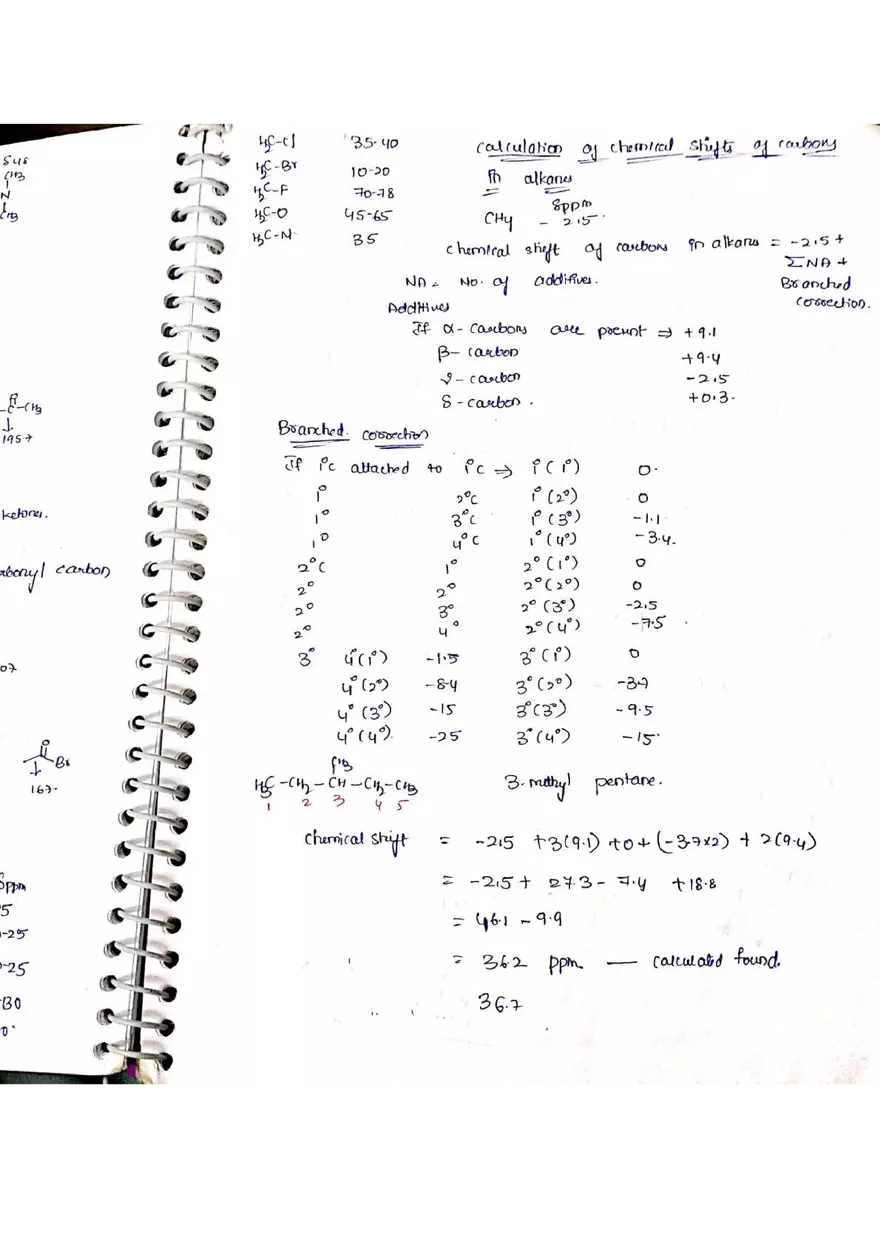 545
CH3
N
CH3
-C-CH3
195.7
ketones.
carbonyl carbon
07
Br
167.
ppm
5
-25
-25
130
0.
H3C-Cl 35-40
H3C-Br 10-20
H3C-F 70-78
H3C-O 45-65
H3C-N 35
Calculation of chemical shifts of carbons
in alkanes
δppm
CH4 - 2.5.
Chemical shift of carbons in alkans = -2.5 +
ΣNA +
Branched
correction.
NA = No. of additives.
Additives
If α- carbons are present ⇒ +9.1
β- carbon +9.4
γ- carbon -2.5
δ-carbon. +0.3.
Branched correction
If 1°C attached to 1°C ⇒ 1°(1°) 0.
1° 2°C 1°(2°) 0
1° 3°C 1°(3°) -1.1
1° 4°C 1°(4°) -3.4
2°C 1° 2°(1°) 0
2° 2° 2°(2°) 0
2° 3° 2°(3°) -2.5
2° 4° 2°(4°) -7.5
3° 4°(1°) -1.5 3°(1°) 0
4°(2°) -8.4 3°(2°) -3.7
4°(3°) -15 3°(3°) -9.5
4°(4°). -25 3°(4°) -15
CH3
H3C-CH2-CH-CH2-CH3 3-methyl pentane.
1 2 3 4 5
Chemical shift = -2.5 +3(9.1) +0+(-3.7x2) + 2(9.4)
= -2.5+ 27.3- 7.4 +18.8
= 46.1 - 9.9
= 36.2 ppm — calculated found.
36.7